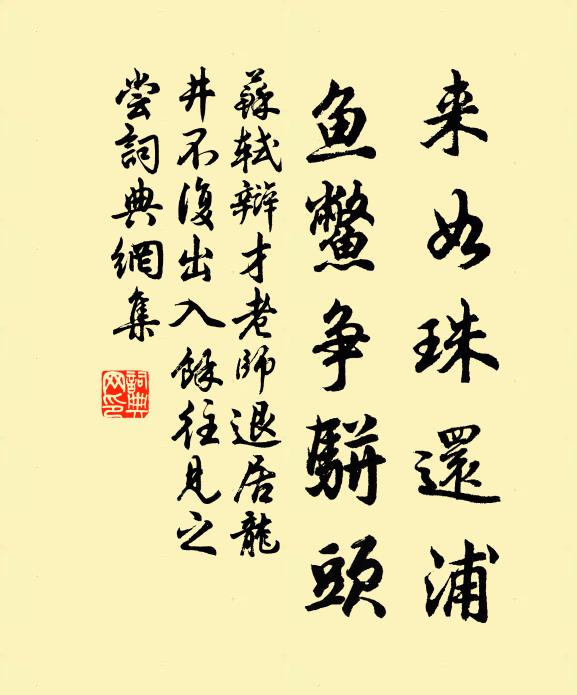 来如珠還浦
鱼鱉争駢頭
蘇軾辯才老師退居龍
井不復出入餘往見之
尝詞典網集
詞典网印